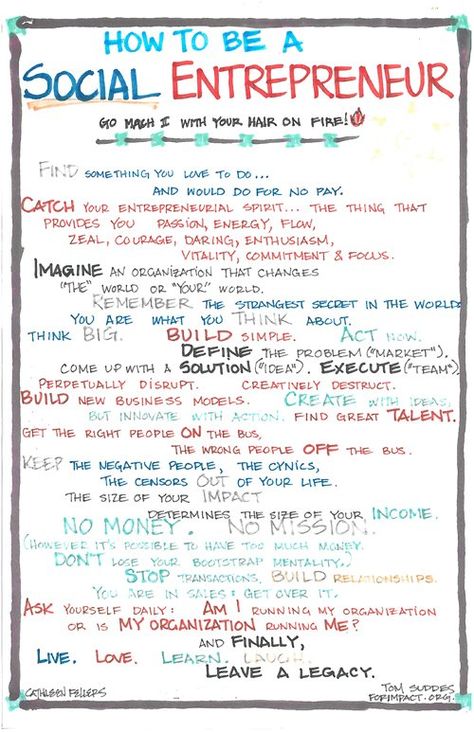 HOW TO BE A
SOCIAL ENTREPRENEUR
GO MACH II WITH YOUR HAIR ON FIRE!
FIND SOMETHING YOU LOVE TO DO...
AND WOULD DO FOR NO PAY.
CATCH YOUR ENTREPRENEURIAL SPIRIT... THE THING THAT
PROVIDES YOU PASSION, ENERGY, FLOW,
ZEAL, COURAGE, DARING, ENTHUSIASM,
VITALITY, COMMITMENT & FOCUS.
IMAGINE AN ORGANIZATION THAT CHANGES
"THE" WORLD OR "YOUR" WORLD.
REMEMBER THE STRANGEST SECRET IN THE WORLD:
YOU ARE WHAT YOU THINK ABOUT.
THINK BIG. BUILD SIMPLE. ACT NOW.
DEFINE THE PROBLEM ("MARKET").
COME UP WITH A SOLUTION ("IDEA"). EXECUTE ("TEAM").
PERPETUALLY DISRUPT. CREATIVELY DESTRUCT.
BUILD NEW BUSINESS MODELS. CREATE WITH IDEAS,
BUT INNOVATE WITH ACTION. FIND GREAT TALENT.
GET THE RIGHT PEOPLE ON THE BUS,
THE WRONG PEOPLE OFF THE BUS.
KEEP THE NEGATIVE PEOPLE, THE CYNICS,
THE CENSORS OUT OF YOUR LIFE.
THE SIZE OF YOUR IMPACT
DETERMINES THE SIZE OF YOUR INCOME.
NO MONEY. NO MISSION.
(HOWEVER IT'S POSSIBLE TO HAVE TOO MUCH MONEY.
DON'T LOSE YOUR BOOTSTRAP MENTALITY.)
STOP TRANSACTIONS, BUILD RELATIONSHIPS.
YOU ARE IN SALES: GET OVER IT.
ASK YOURSELF DAILY: AM I RUNNING MY ORGANIZATION
OR IS MY ORGANIZATION RUNNING ME?
AND FINALLY,
LIVE. LOVE. LEARN. LAUGH.
LEAVE A LEGACY.
CATHLEEN FELLERS
TOM SUDDES
FORIMPACT.ORG.